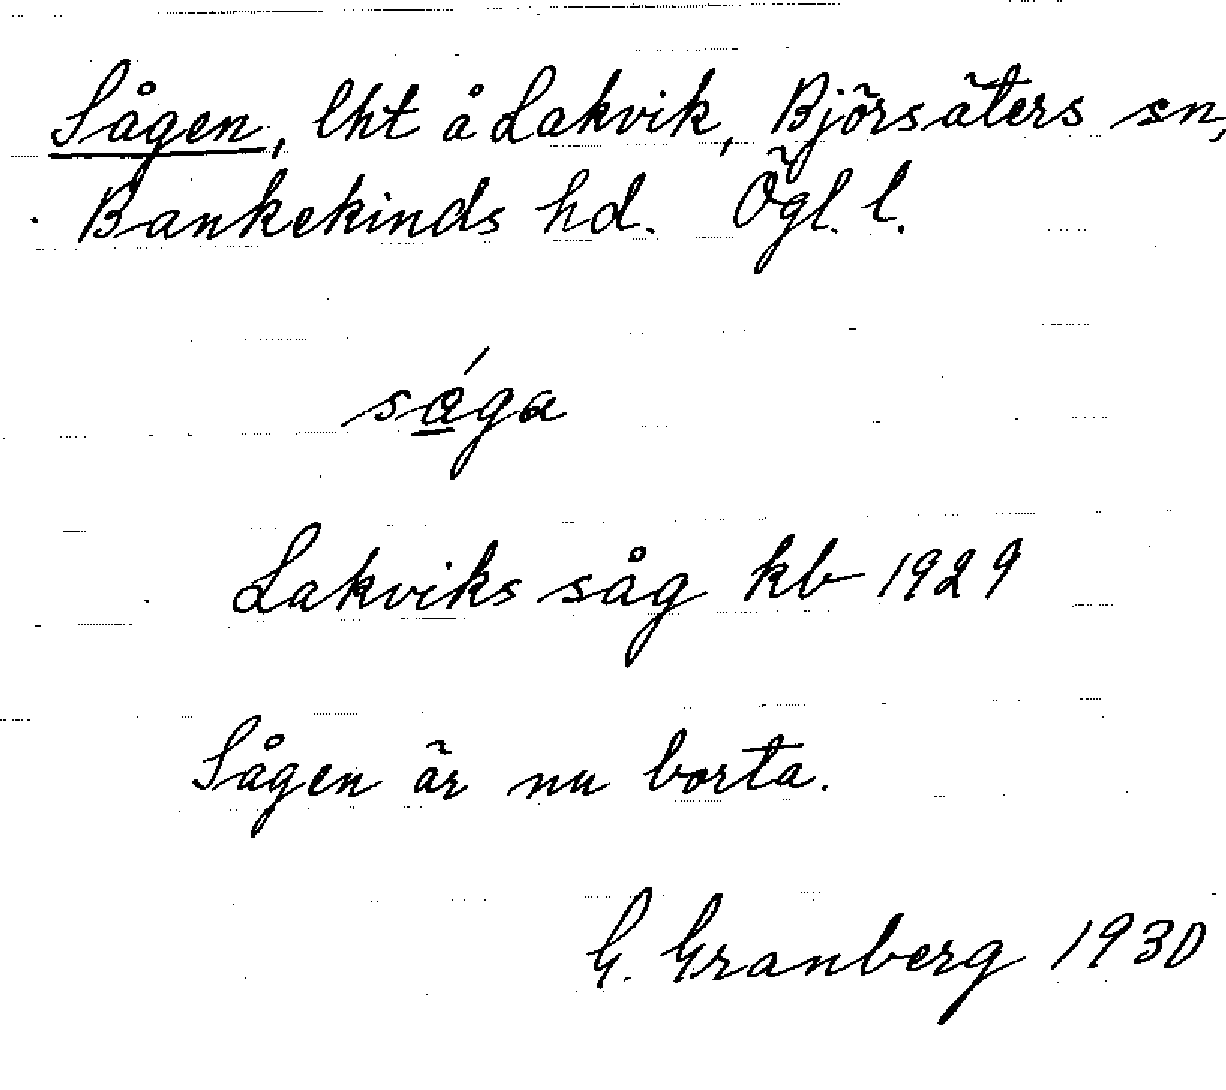 Sågen, lht å Lakvik, Björsäters sn,
Bankekinds hd. Ögl. l.
såga
Lakviks såg kb 1929
Sågen är nu borta.
G. Granberg 1930